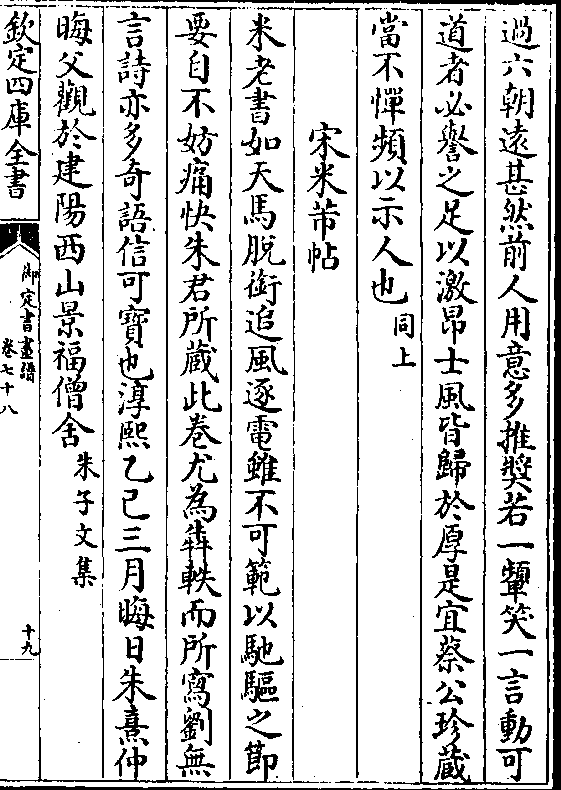 過六朝遠甚然前人用意多推奬若一顰笑一言動可
道者必譽之足以激昂士風皆歸於厚是宜蔡公珍蔵
當不憚頻以示人也同上
宋米芾帖
米老書如天馬脱銜追風逐電雖不可範以馳驅之節
要自不妨痛快朱君所蔵此卷尤為犇軼而所寫劉無
言詩亦多奇語信可寶也淳熙乙已三月晦日朱熹仲
晦父觀於建陽西山景福僧舍朱子文集
欽定四庫全書
御定書畫譜
卷七十八
十九